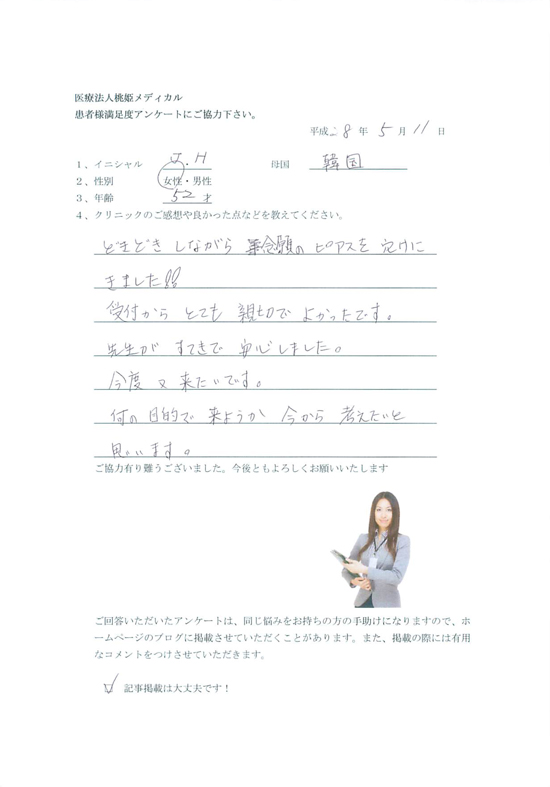 医療法人桃姫メディカル
患者様満足度アンケートにご協力下さい。
平成28年5月11日
1、イニシャル J.H 母国 韓国
2、性別 女性・男性
3、年齢 52才
4、クリニックのご感想や良かった点などを教えてください。
どきどきしながら 念願の ピアスを 穴けに
きました!!
受付から とても 親切で よかったです。
先生が すてきで 安心しました。
今度 又 来たいです。
何の 目的で 来ようか 今から 考えたいと
思います。
ご協力有り難うございました。今後ともよろしくお願いいたします
ご回答いただいたアンケートは、同じ悩みをお持ちの方の手助けになりますので、ホ
ームページのブログに掲載させていただくことがあります。また、掲載の際には有用
なコメントをつけさせていただきます。
記事掲載は大丈夫です！